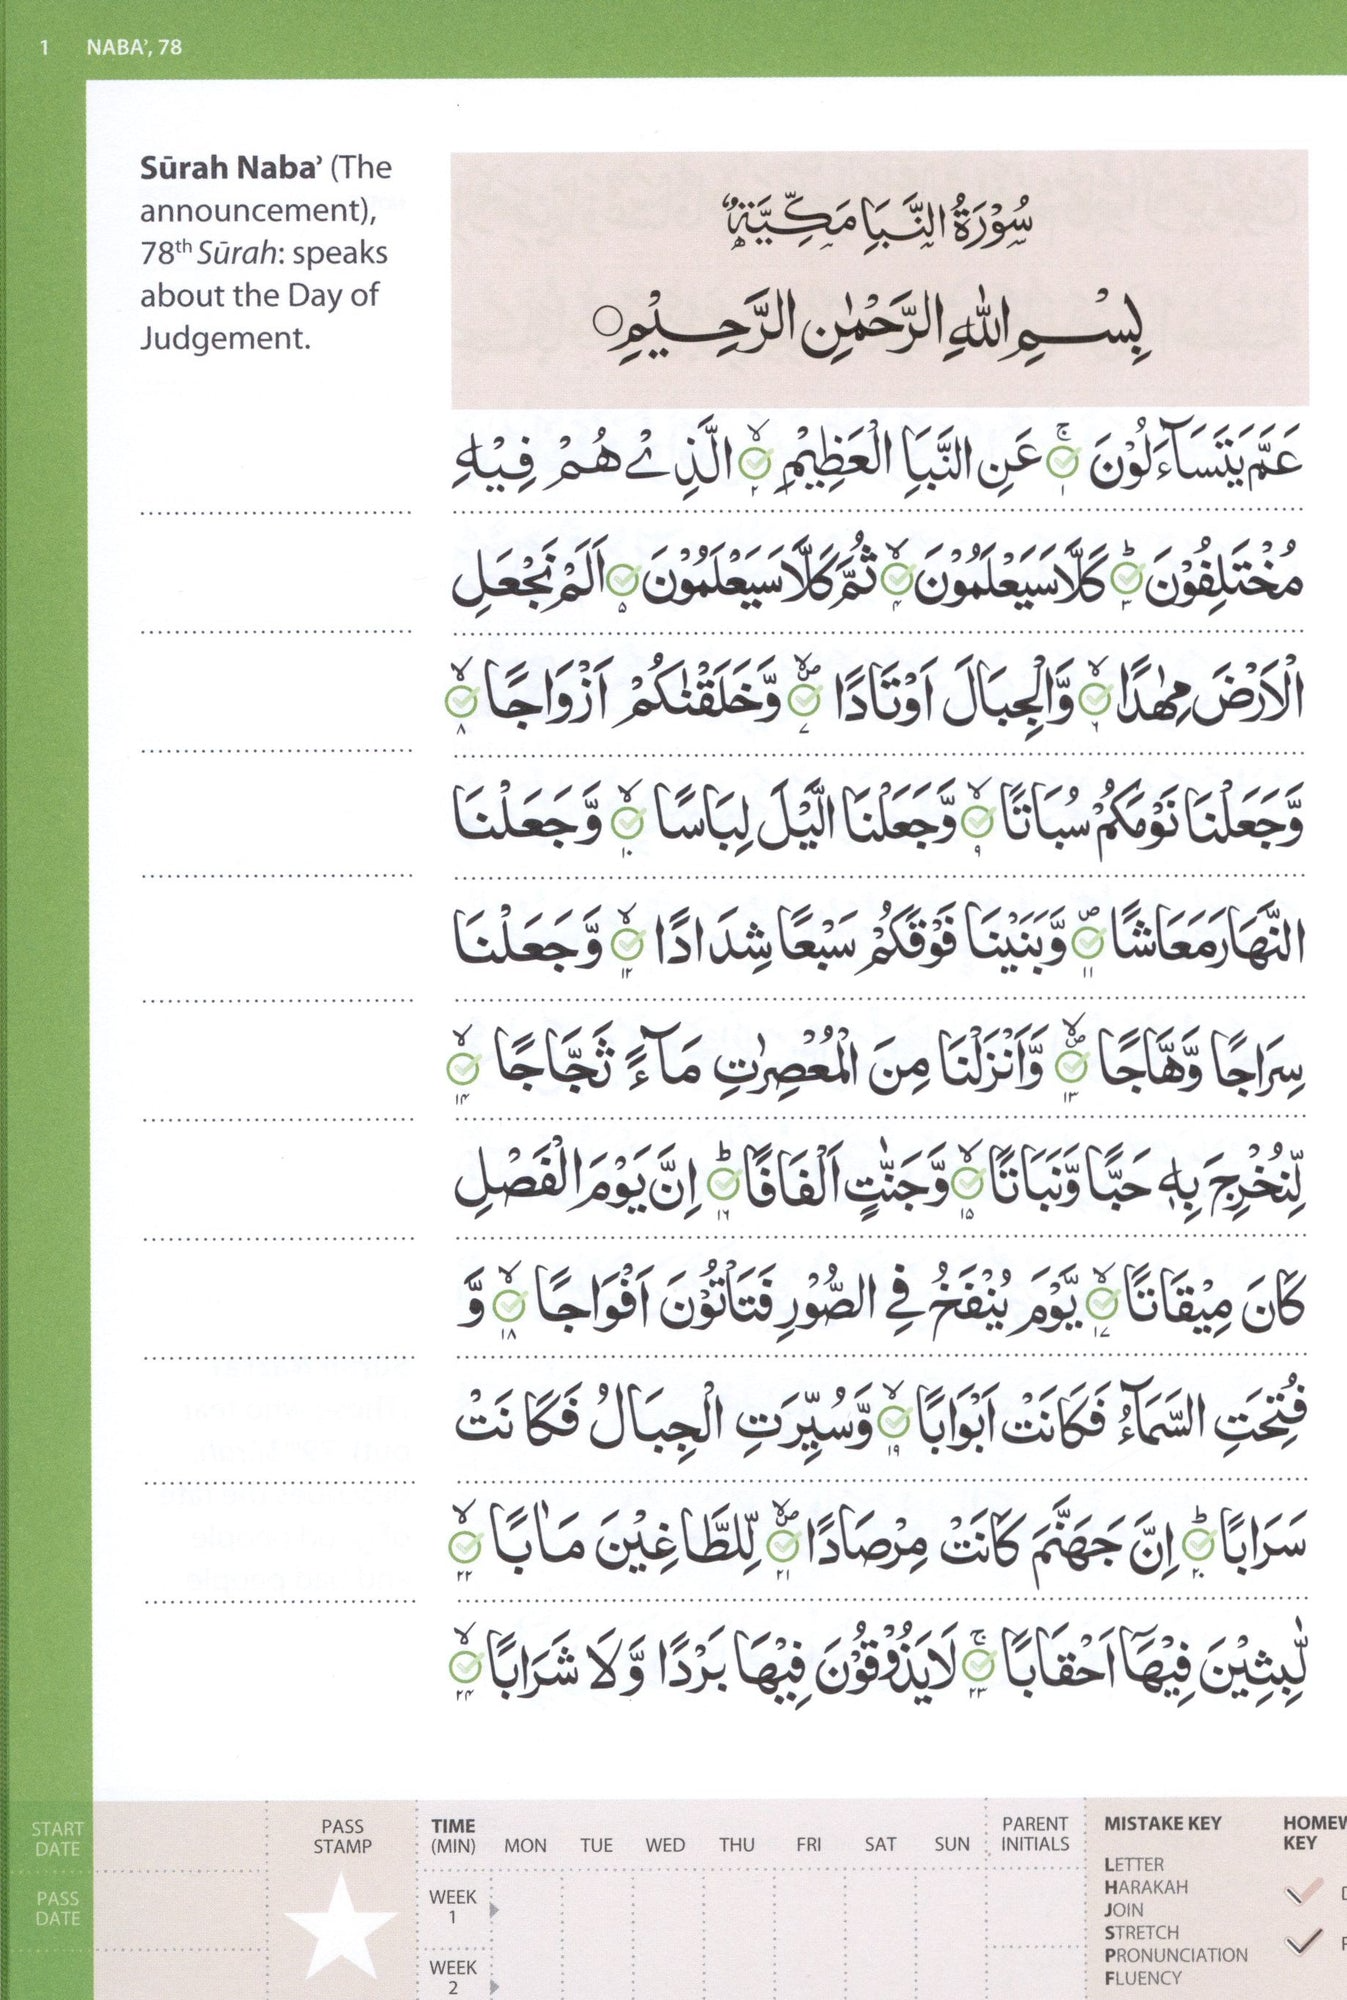 1 NABA’, 78
Sūrah Naba’ (The
announcement),
78th Sūrah: speaks
about the Day of
Judgement.
سُوْرَةُ النَّبَاِ مَكِّيَّةٌ
بِسْمِ اللهِ الرَّحْمٰنِ الرَّحِيْمِ ○
عَمَّ يَتَسَآءَلُوْنَ ۚ ١ عَنِ النَّبَاِ الْعَظِيْمِ ۙ ٢ الَّذِيْ هُمْ فِيْهِ
مُخْتَلِفُوْنَ ؕ ٣ كَلَّا سَيَعْلَمُوْنَ ۙ ۴ ثُمَّ كَلَّا سَيَعْلَمُوْنَ ۵ اَلَمْ نَجْعَلِ
الْاَرْضَ مِهٰدًا ۙ ٦ وَّالْجِبَالَ اَوْتَادًا ۪ۙ ٧ وَّخَلَقْنٰكُمْ اَزْوَاجًا ۙ ٨
وَّجَعَلْنَا نَوْمَكُمْ سُبَاتًا ۙ ٩ وَّجَعَلْنَا الَّيْلَ لِبَاسًا ۙ ١٠ وَّجَعَلْنَا
النَّهَارَ مَعَاشًا ۪ ١١ وَّبَنَيْنَا فَوْقَكُمْ سَبْعًا شِدَادًا ۙ ١٢ وَّجَعَلْنَا
سِرَاجًا وَّهَّاجًا ۪ۙ ١٣ وَّاَنْزَلْنَا مِنَ الْمُعْصِرٰتِ مَآءً ثَجَّاجًا ۙ ١۴
لِّنُخْرِجَ بِهٖ حَبًّا وَّنَبَاتًا ۙ ١۵ وَّجَنّٰتٍ اَلْفَافًا ؕ ١٦ اِنَّ يَوْمَ الْفَصْلِ
كَانَ مِيْقَاتًا ۙ ١٧ يَّوْمَ يُنْفَخُ فِي الصُّوْرِ فَتَاْتُوْنَ اَفْوَاجًا ۙ ١٨ وَّ
فُتِحَتِ السَّمَآءُ فَكَانَتْ اَبْوَابًا ۙ ١٩ وَّسُيِّرَتِ الْجِبَالُ فَكَانَتْ
سَرَابًا ؕ ٢٠ اِنَّ جَهَنَّمَ كَانَتْ مِرْصَادًا ۪ۙ ٢١ لِّلطَّاغِيْنَ مَاٰبًا ۙ ٢٢
لّٰبِثِيْنَ فِيْهَآ اَحْقَابًا ۚ ٢٣ لَا يَذُوْقُوْنَ فِيْهَا بَرْدًا وَّلَا شَرَابًا ۙ ٢۴
START
DATE
PASS
DATE
PASS
STAMP
TIME
(MIN) MON TUE WED THU FRI SAT SUN
WEEK
1
WEEK
2
PARENT
INITIALS
MISTAKE KEY
LETTER
HARAKAH
JOIN
STRETCH
PRONUNCIATION
FLUENCY
KEY